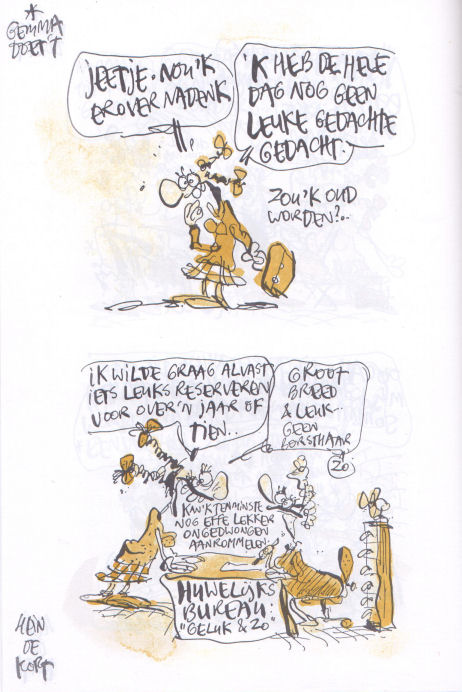 *
GEMMA
DOET'T
JEETJE. NOU'K
EROVER NADENK
'K HEB DE HELE
DAG NOG GEEN
LEUKE GEDACHTE
GEDACHT.
ZOU'K OUD
WORDEN?..
IK WILDE GRAAG ALVAST
IETS LEUKS RESERVEREN
VOOR OVER'N JAAR OF
TIEN..
GROOT
BREED
& LEUK..
GEEN
BORSTHAAR
ZO
KAN'K TENMINSTE
NOG EFFE LEKKER
ONGEDWONGEN
AANROMMELEN.
HUWELIJKS
BUREAU:
"GELUK & ZO"
HAN
DE
KORT